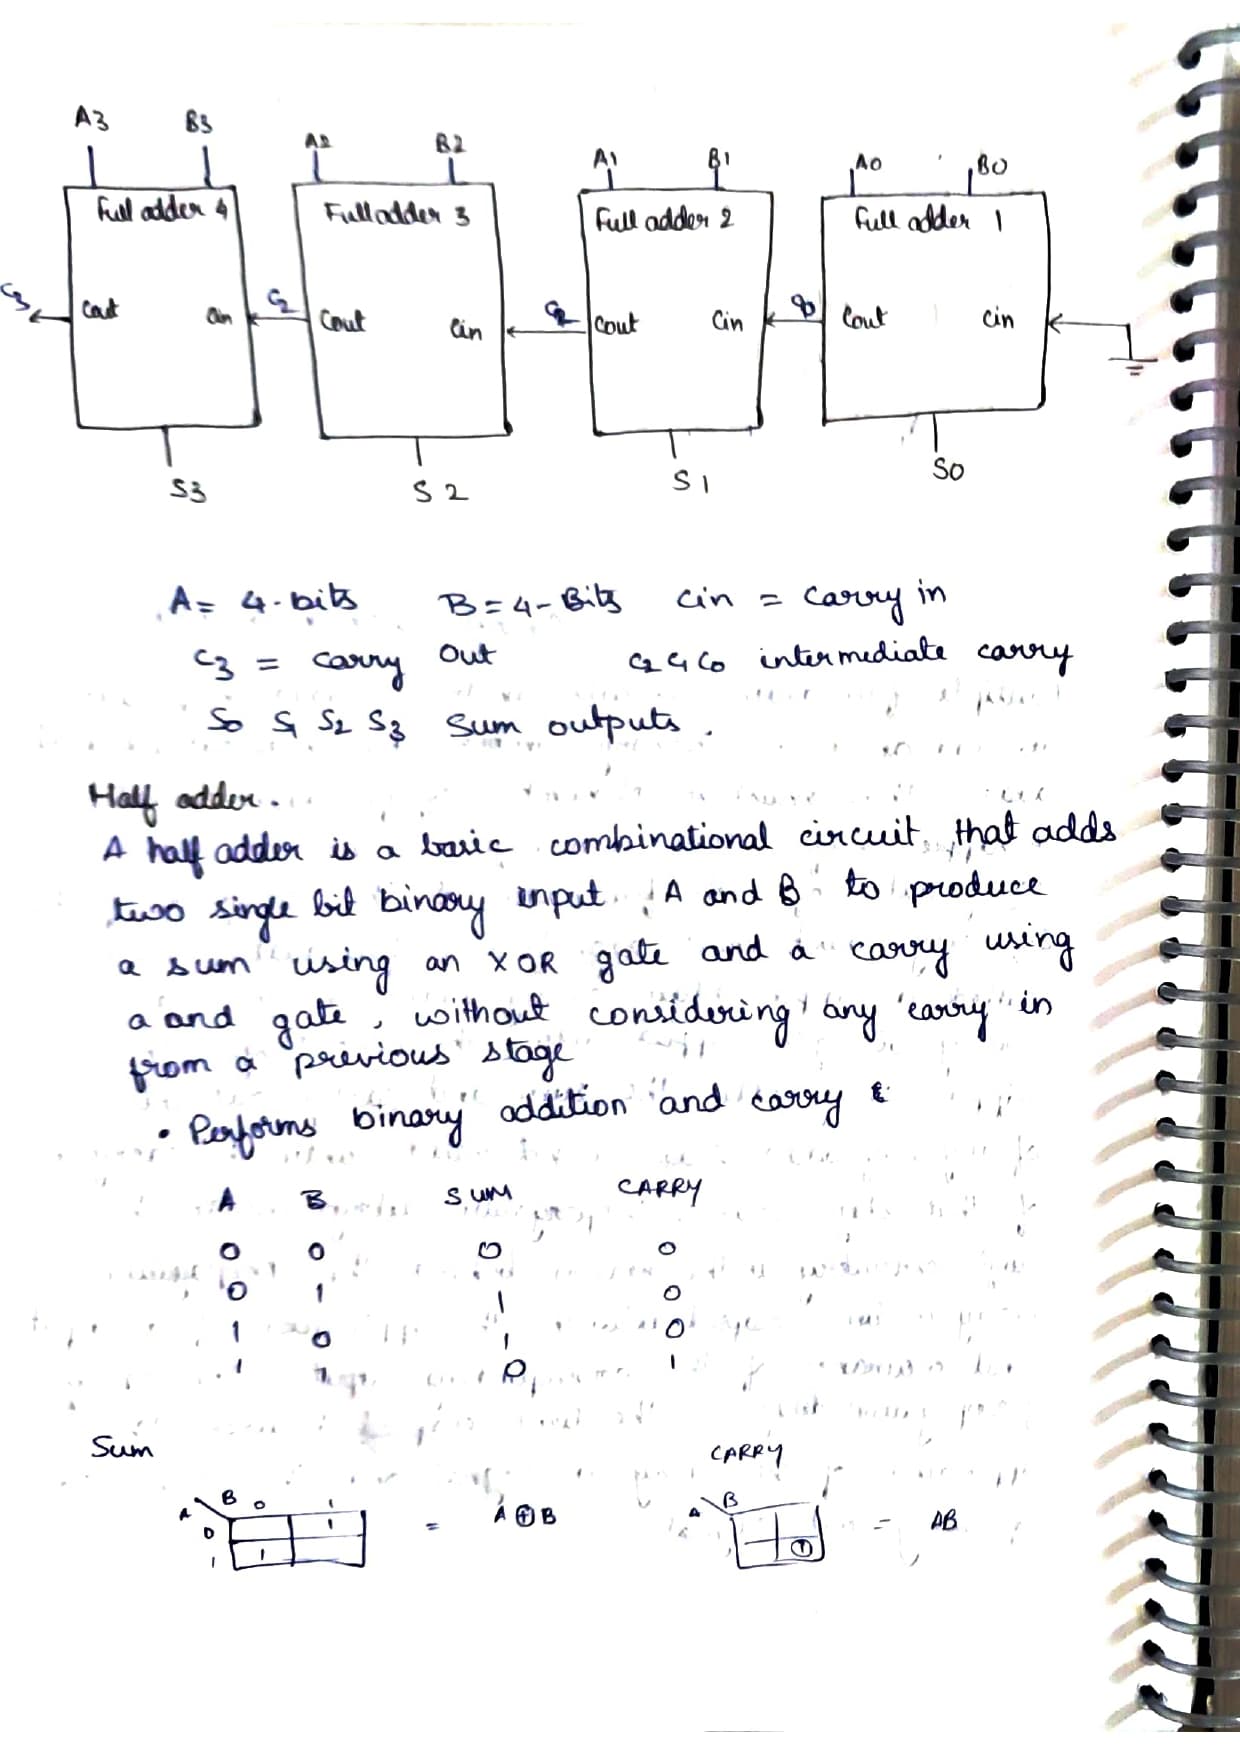 A3 B3 A2 B2 A1 B1 A0 B0
Full adder 4 Full adder 3 Full adder 2 Full adder 1
C3 Cout Cin C2 Cout Cin Cout Cin Cout Cin
S3 S2 S1 S0
A = 4-bits B = 4-Bits Cin = Carry in
C3 = Carry Out C2 C1 C0 intermediate carry
S0 S1 S2 S3 Sum outputs.
Half adder.
A half adder is a basic combinational circuit that adds
two single bit binary input A and B to produce
a sum using an XOR gate and a carry using
a and gate, without considering any carry in
from a previous stage
• Performs binary addition and carry
A B SUM CARRY
0 0 0 0
0 1 1 0
1 0 1 0
1 1 0 1
Sum CARRY
A B 0 1
0 1 = A ⊕ B
1 1
A B
1 = AB